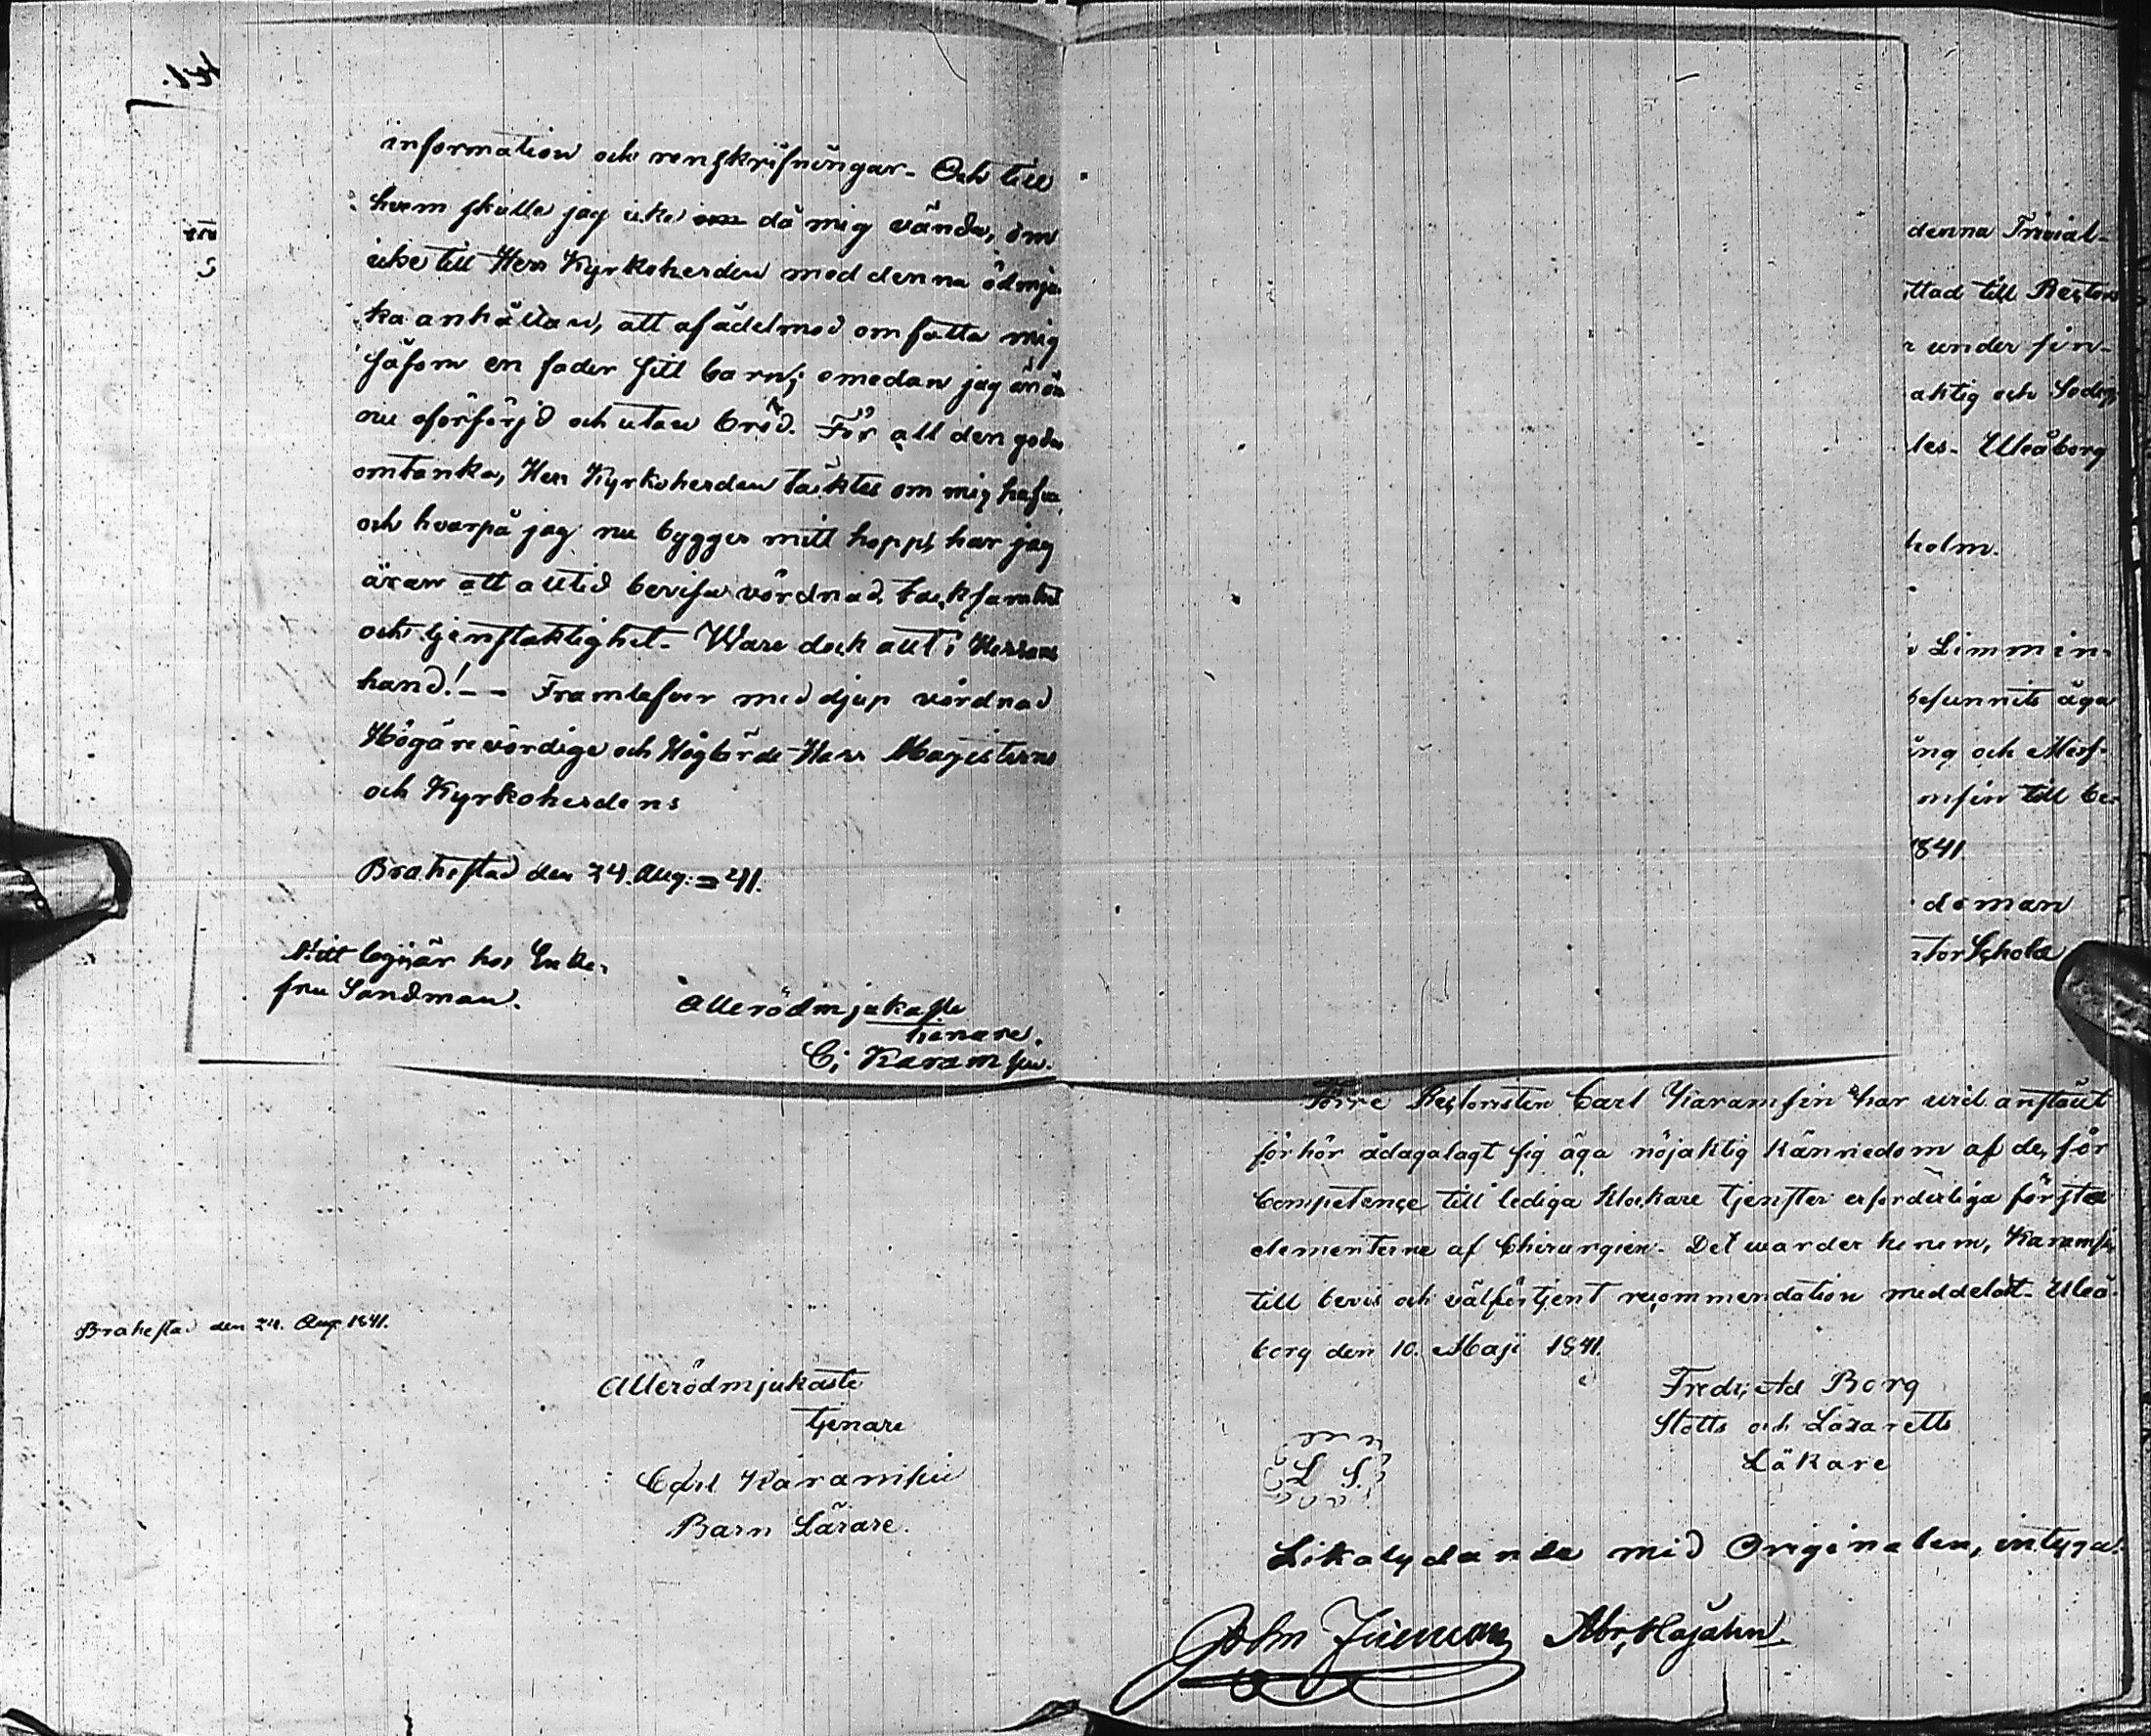 information och renskrifningar. Och till
hvem skulle jag icke då mig vända, om
icke till Herr Kyrkoherden med denna ödmju-
ka anhållan, att af ädelmod omfatta mig
såsom en fader sitt barn; emedan jag är än
nu oförsörjd och utan bröd. För all den goda
omtanka, Herr Kyrkoherden täcktes om mig hafva,
och hvarpå jag nu bygger mitt hopp, har jag
äran att alltid bevisa vördnad, tacksamhet
och tjenstaktighet. Ware dock allt i Herrans
hand! -- Framlefver med djup vördnad
Högärevördige och Höglärde Herr Magisterns
och Kyrkoherdens
Brahestad den 24. Aug: = 41.
Mitt logi är hos Enke-
fru Sandman.
Allerödmjukaste
tienare.
C; Karamsin.
denna Trivial-
ttad till Rectors
r under sin-
aktig och
les. Uleåborg
holm.
Limmin-
befunnits äga
ing och Mes-
msin till be-
1841
deman
tor Schola
Förre Rectoristen Carl Karamsin har wid anstäldt
förhör ådagalagt sig äga nöjaktig kännedom af de, för
Competence till lediga Klockare tjenster erforderliga första
elementerne af Chirurgien. Det warder honom, Karamsin
till bevis och välförtjent recommendation meddeladt. Uleå-
borg den 10. Maji 1841.
Fredr; Ad Borg
Stotts och Lazaretts
Läkare
L. S.
Brahestad den 24. Aug. 1841.
Allerödmjukaste
tjenare
Carl Karamsin
Barn Lärare.
Likalydande med Originalen, intyga:
John Abr;